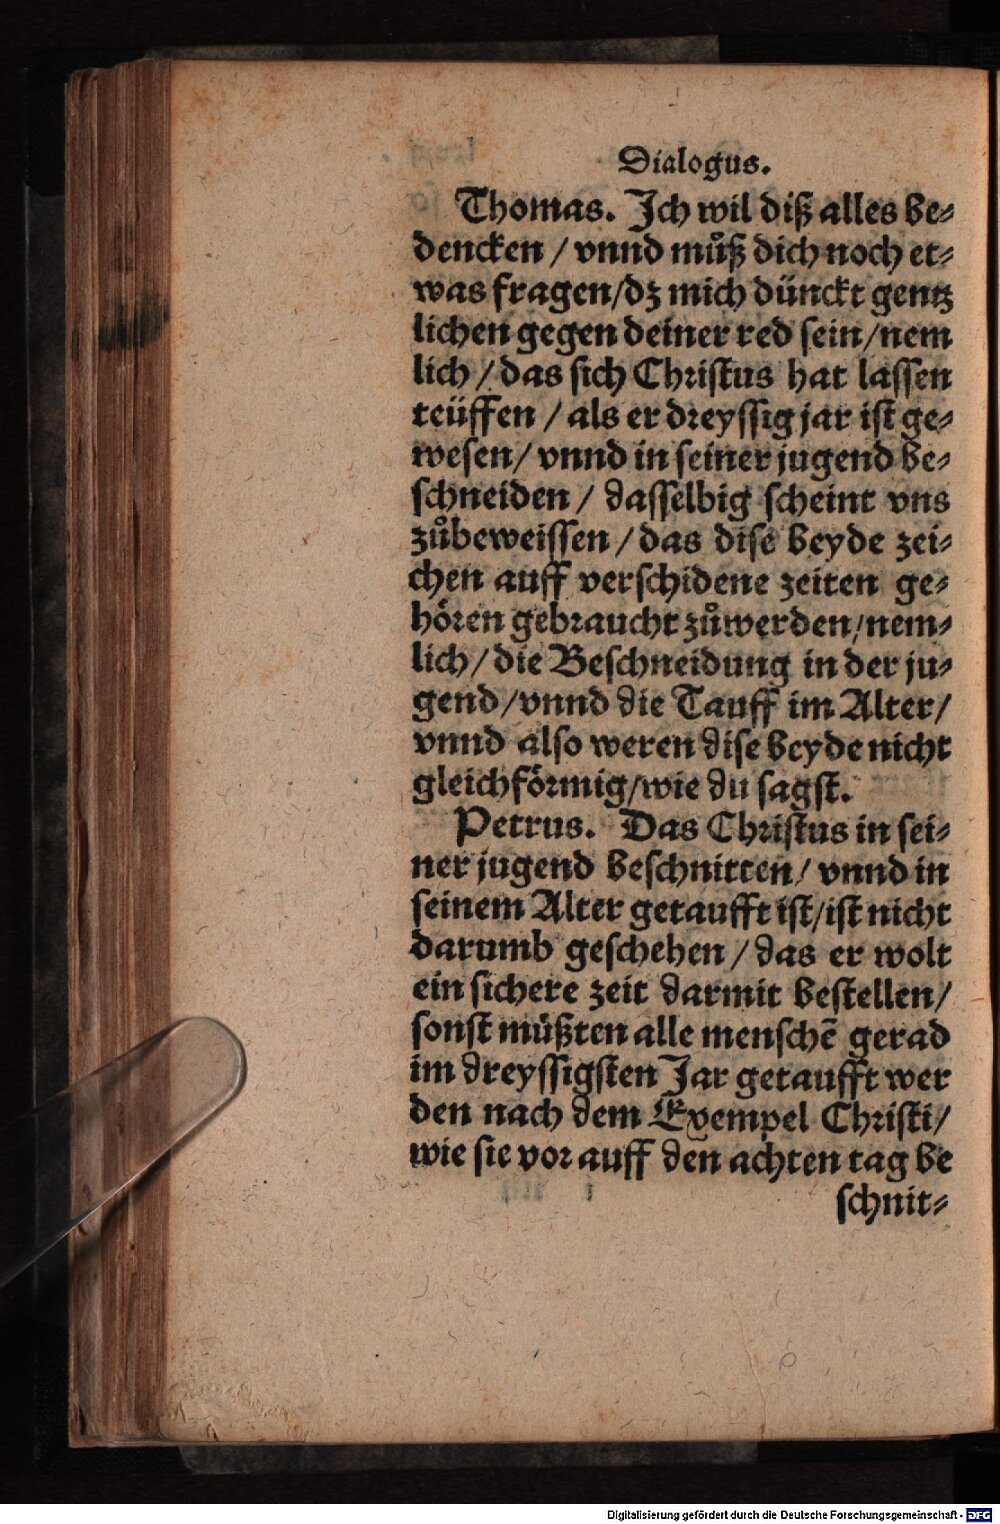 Dialogus.
Thomas. Ich wil diß alles be⸗
dencken / vnnd můß dich noch et⸗
was fragen/dz mich dünckt gentz
lichen gegen deiner red sein/nem
lich / das sich Christus hat lassen
teüffen / als er dreyssig jar ist ge⸗
wesen/ vnnd in seiner jugend be⸗
schneiden / dasselbig scheint vns
zůbeweissen / das dise beyde zei⸗
chen auff verschidene zeiten ge⸗
hören gebraucht zůwerden/nem⸗
lich / die Beschneidung in der ju⸗
gend/vnnd die Tauff im Alter/
vnnd also weren dise beyde nicht
gleichförmig/wie du sagst.
Petrus. Das Christus in sei⸗
ner jugend beschnitten/ vnnd in
seinem Alter getaufft ist/ist nicht
darumb geschehen / das er wolt
ein sichere zeit darmit bestellen/
sonst müßten alle menschē gerad
im dreyssigsten Jar getaufft wer
den nach dem Exempel Christi/
wie sie vor auff den achten tag be
schnit⸗
Digitalisierung gefördert durch die Deutsche Forschungsgemeinschaft - DFG